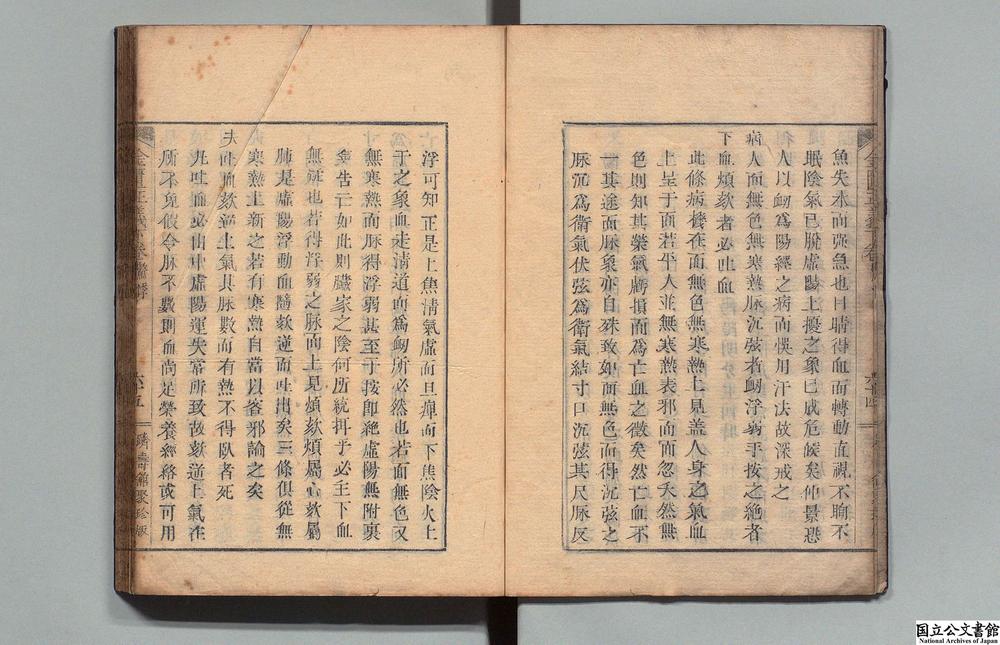 魚失水而弥急也目睛得血而轉動直視不眴不
眠陰氣已脫虛陽上擾之象已成危候矣仲景恐
人以衂爲陽經之病而悞用汗法故深戒之
病人面無色無寒熱脉沉弦者衂浮弱手按之絶者
下血煩欬者必吐血
此條病機在面無色無寒熱上見盖人身之氣血
上呈于面若平人並無寒熱表邪而面忽夭然無
色則知其榮氣虧損而爲亡血之徵矣然亡血不
一其途而脉象亦自殊致如面無色而得沉弦之
脉沉爲衛氣伏弦爲衛氣結寸口沉弦其尺脉反
浮可知正是上焦淸氣虛而且痺而下焦陰火上
于之象血走淸道而爲衂所必然也若面無色又
無寒熱而脉得浮弱甚至手按即絶虛陽無附裹
愈告亡如此則臟家之陰何所統抯乎必主下血
無疑也若得浮弱之脉而上見煩欬煩屬心欬屬
肺是虛陽浮動血隨欬逆而吐出矣三條俱從無
寒熱主新之若有寒熱自當以客邪論之矣
夫吐血欬逆上氣其脉數而有熱不得臥者死
凡吐血必由中虛陽運失常所致故欬逆上氣在
所不免假令脉不數則血尚足榮養經絡或可用
金匱正義 卷
六十四
六十五
濟壽舘聚珍版
国立公文書館
National Archives of Japan